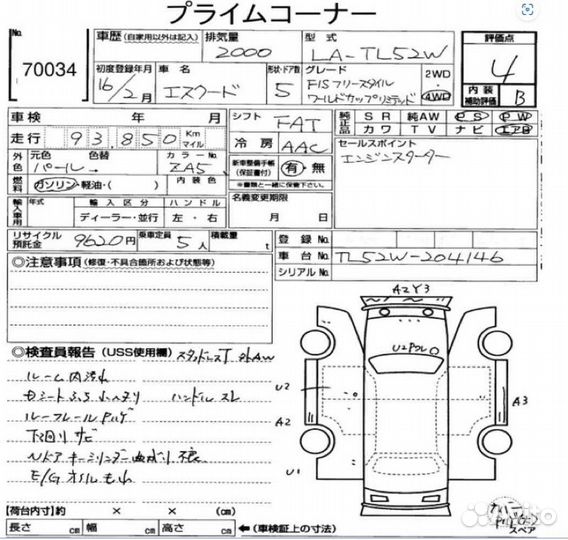 プライムコーナー
No. 70034
車歴 (自家用以外は記入) 排気量 2000 型式 LA-TL52W 評価点 4
初度登録年月 16/2月 車名 エスクード 形状・ドア数 5 グレード FISフリースタイル ワールドカップリミテッド 2WD・4WD 内装補助評価 B
車検 年 月 シフト FAT 純正品 SR 純AW PS PW
カワ TV ナビ エアB
走行 93,850 Km マイル 冷房 AAC セールスポイント
エンジンスターター
外色 元色 パール 色替 カラーNo. ZA5 新車整備手帳(保証書付) 有・無
燃料 ガソリン・軽油・( ) 内装色 ※書類と一緒に保管下さい。
輸入車用 年式 輸入区分 ハンドル 名義変更期限
ディーラー・並行 左・右 月 日
リサイクル預託金 9620円 乗車定員 5人 積載量 t 登録No.
車台No. TL52W-204146
シリアルNo.
◎注意事項 (修復・不具合箇所および状態等)
A2 Y3
U2 Pクレ
U2
A2
A3
U1
◎検査員報告 (USS使用欄) スタッドレスT 外AW
ルーム内汚れ
ハンドルスレ
ルーフレール
下回りサビ
E/Gオイルもれ
【荷台内寸】 約 × × (cm)
長さ cm 幅 cm 高さ cm ←(車検証上の寸法)
スペア
Avito